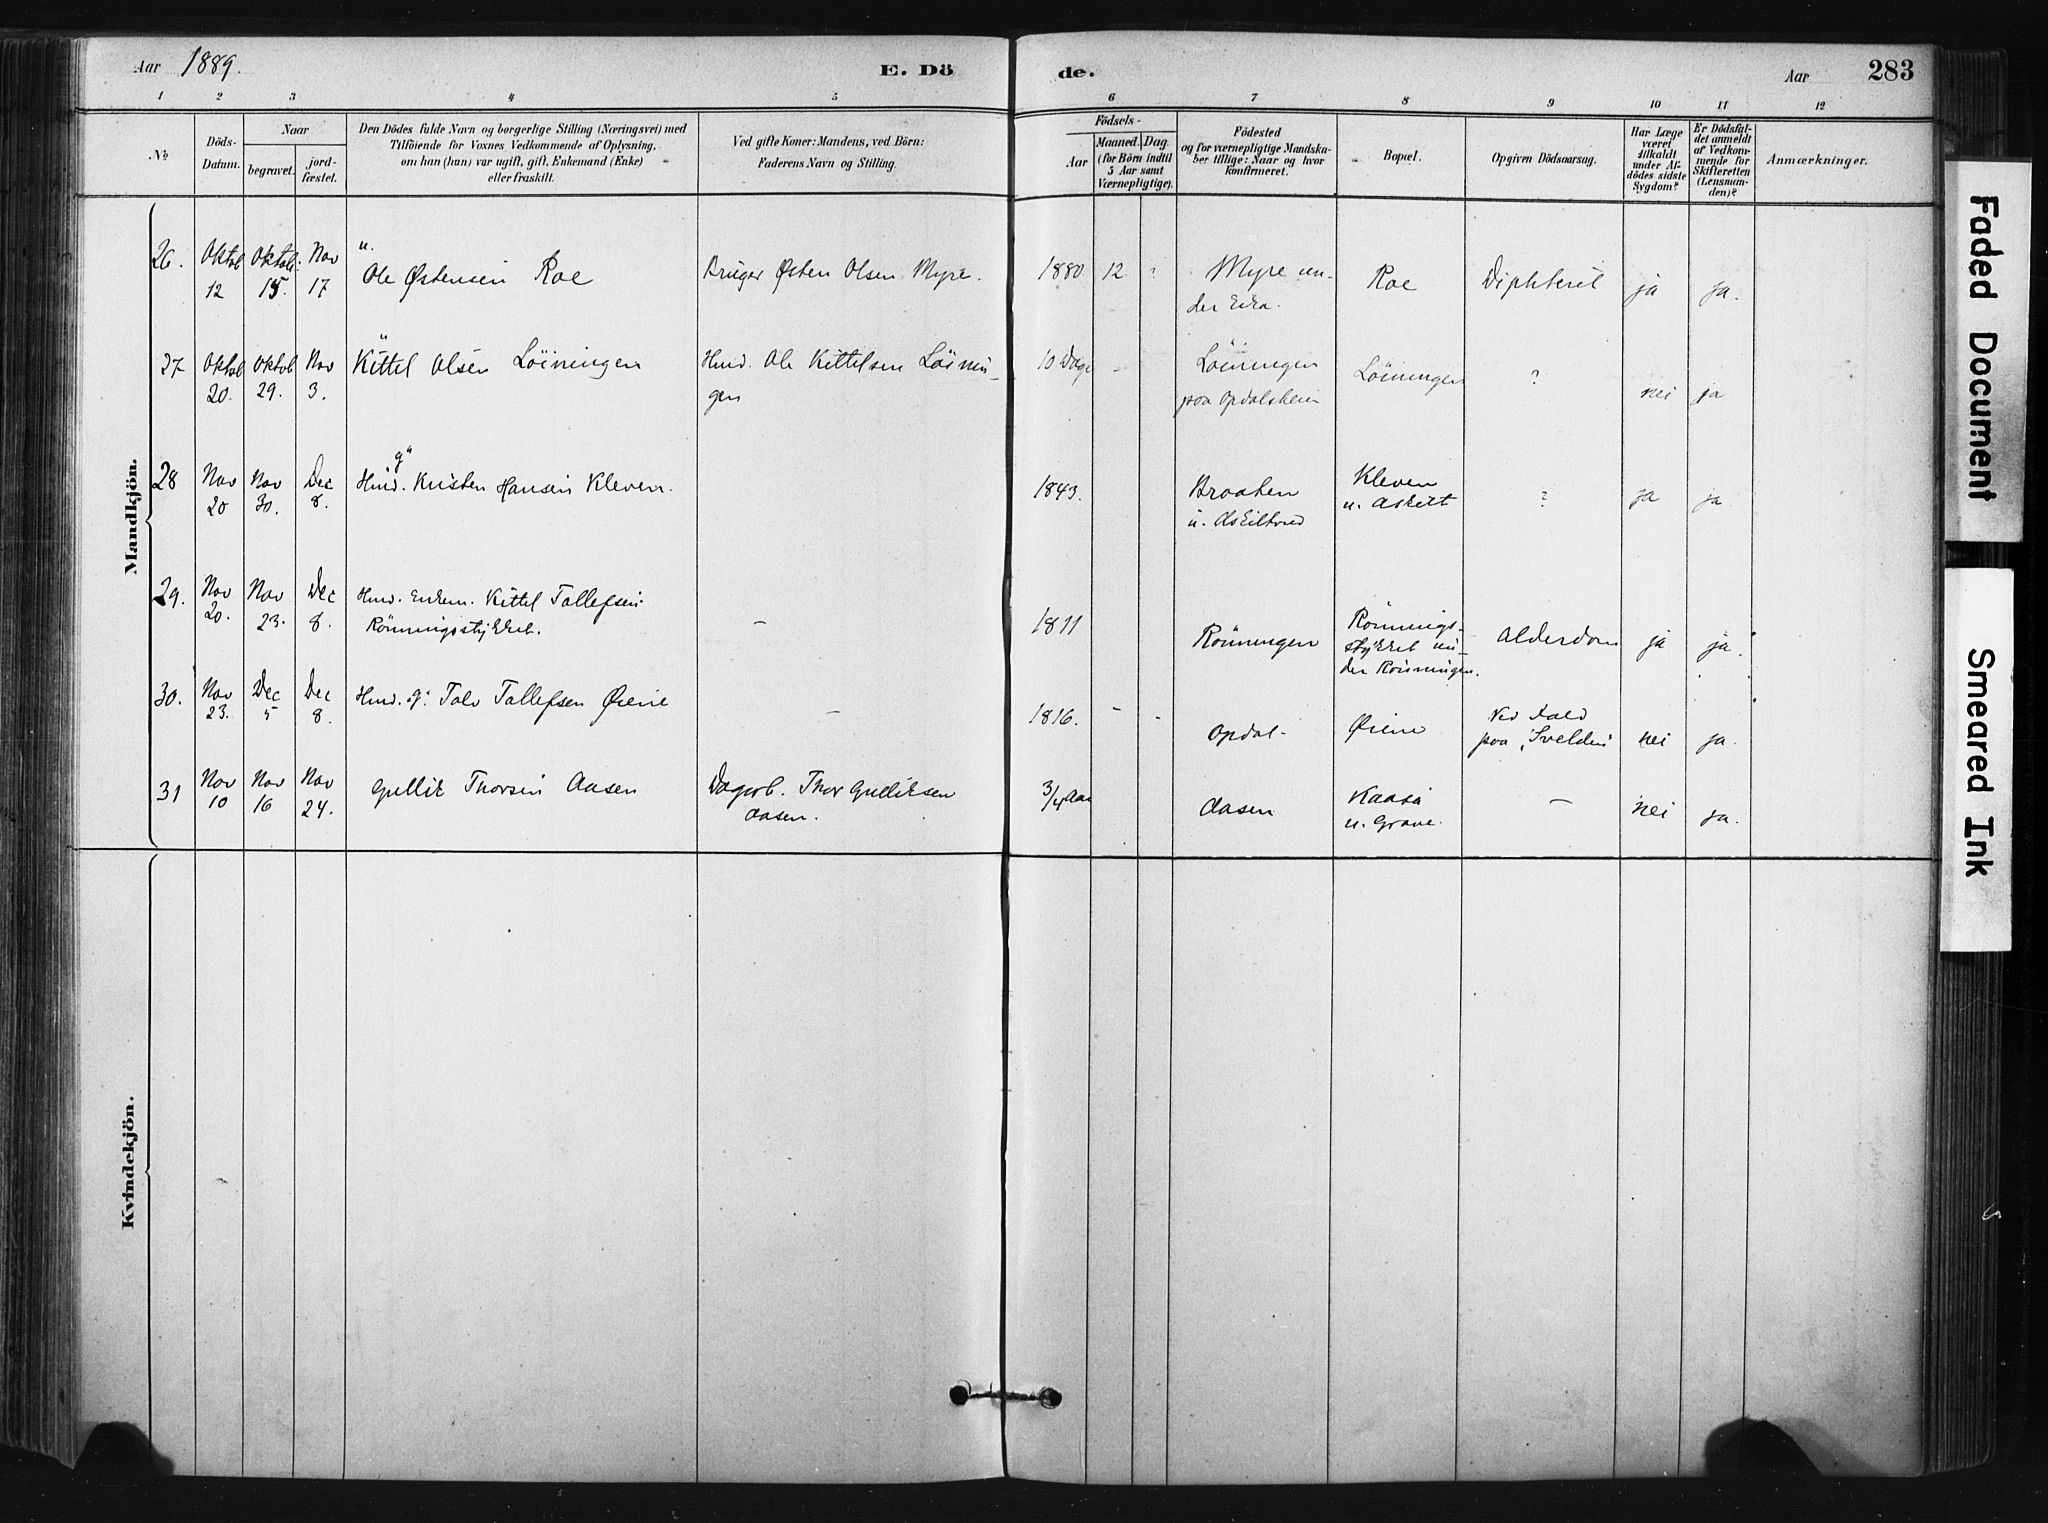 Aar 1889.
E. Dö
de.
Aar
283
1 2 3 4 5 6 7 8 9 10 11 12
No
Döds-
Datum.
Naar
begravet.
jord-
fæstet.
Den Dödes fulde Navn og borgerlige Stilling (Næringsvei) med
Tilföiende for Voxnes Vedkommende af Oplysning,
om han (hun) var ugift, gift, Enkemand (Enke)
eller fraskilt.
Ved gifte Koner: Mandens, ved Börn:
Faderens Navn og Stilling.
Födsels-
Aar
Maaned. Dag
(for Börn indtil
5 Aar samt
Værnepligtige).
Födested
og for værnepligtige Mandska-
ber tillige: Naar og hvor
konfirmeret.
Bopæl.
Opgiven Dödsaarsag.
Har Læge
været
tilkaldt
under Af-
dödes sidste
Sygdom?
Er Dödsfal-
det anmeldt
af Vedkom-
mende for
Skifteretten
(Lensman-
den)?
Anmærkninger.
Mandkjön.
26. Oktob 12 Oktob. 15. Nov 17
u.
Ole Østensen Roe
Bruger Østen Olsen Myre.
1880 12 ?
Myre un-
der Eika.
Roe
Diphterit
ja
ja.
27 Oktob 20. Oktob 29. Nov 3.
Kittel Olsen Löiningen
Hmd. Ole Kittelsen Löinin-
gen
10 Dage -
Löiningen
paa Opdalsheien
Löiningen
?
nei
ja
28 Nov 20 Nov 30. Dec 8.
g
Hmd. Kristen Hansen Kleven.
1843.
Braaten
u. Askiltsrud
Kleven
u. Askilt
?
ja
ja.
29. Nov 20. Nov 23. Dec 8.
Hmd. Enkem. Kittel Tollefsen
Rönningsstykket.
-
1811
Rönningen
Rönnings-
stykket un-
der Rönningen.
Alderdom
ja
ja.
30. Nov 23. Dec 5 Dec 8.
Hmd. g. Tolv Tollefsen Øiene
-
1816. - -
Opdal-
Øiene
Ved Fald
paa "Svelden"
nei
ja.
31 Nov 10 Nov 16 Nov 24.
Gullik Thorsen Aasen
Dagarb. Thor Gulliksen
Aasen.
3/4 Aar
Aasen
Kaasa
u. Grave.
-
nei
ja.
Kvindekjön.
Faded Document
Smeared Ink